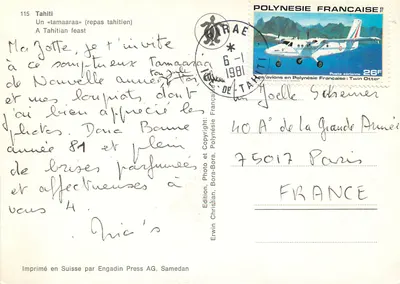 115 Tahiti
Un «tamaaraa» (repas tahitien)
A Tahitian feast
Ma Jotte, je t'invite
à ce somptueux Tamaaraa
de Nouvelle année, toi
et nos loupiots dont
j'ai bien apprécié les
photos. Donc Bonne
année 81 et plein
de brises parfumées
et affectueuses à
vous 4.
PIRAE
6-1
1981
ILE DE TAHITI
POLYNÉSIE FRANÇAISE
L'aviation en Polynésie Française: Twin Otter
POSTE AÉRIENNE
26F
Joëlle
40 Av de la Grande Armée
75017 Paris
FRANCE
Edition, Photo et Copyright:
Erwin Christian, Bora-Bora, Polynésie Française
Imprimé en Suisse par Engadin Press AG, Samedan